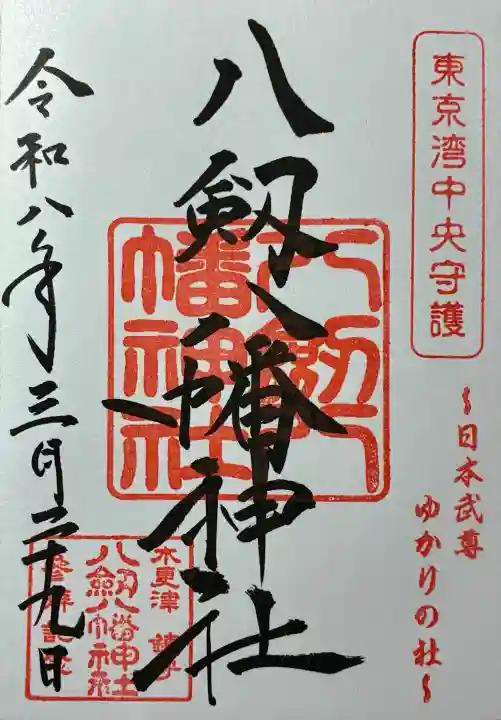 東京湾中央守護
～日本武尊
ゆかりの社～
八剱八幡神社
八剱八幡神社
令和八年三月二十九日
木更津 鎮守
八剱八幡神社
参拝記念